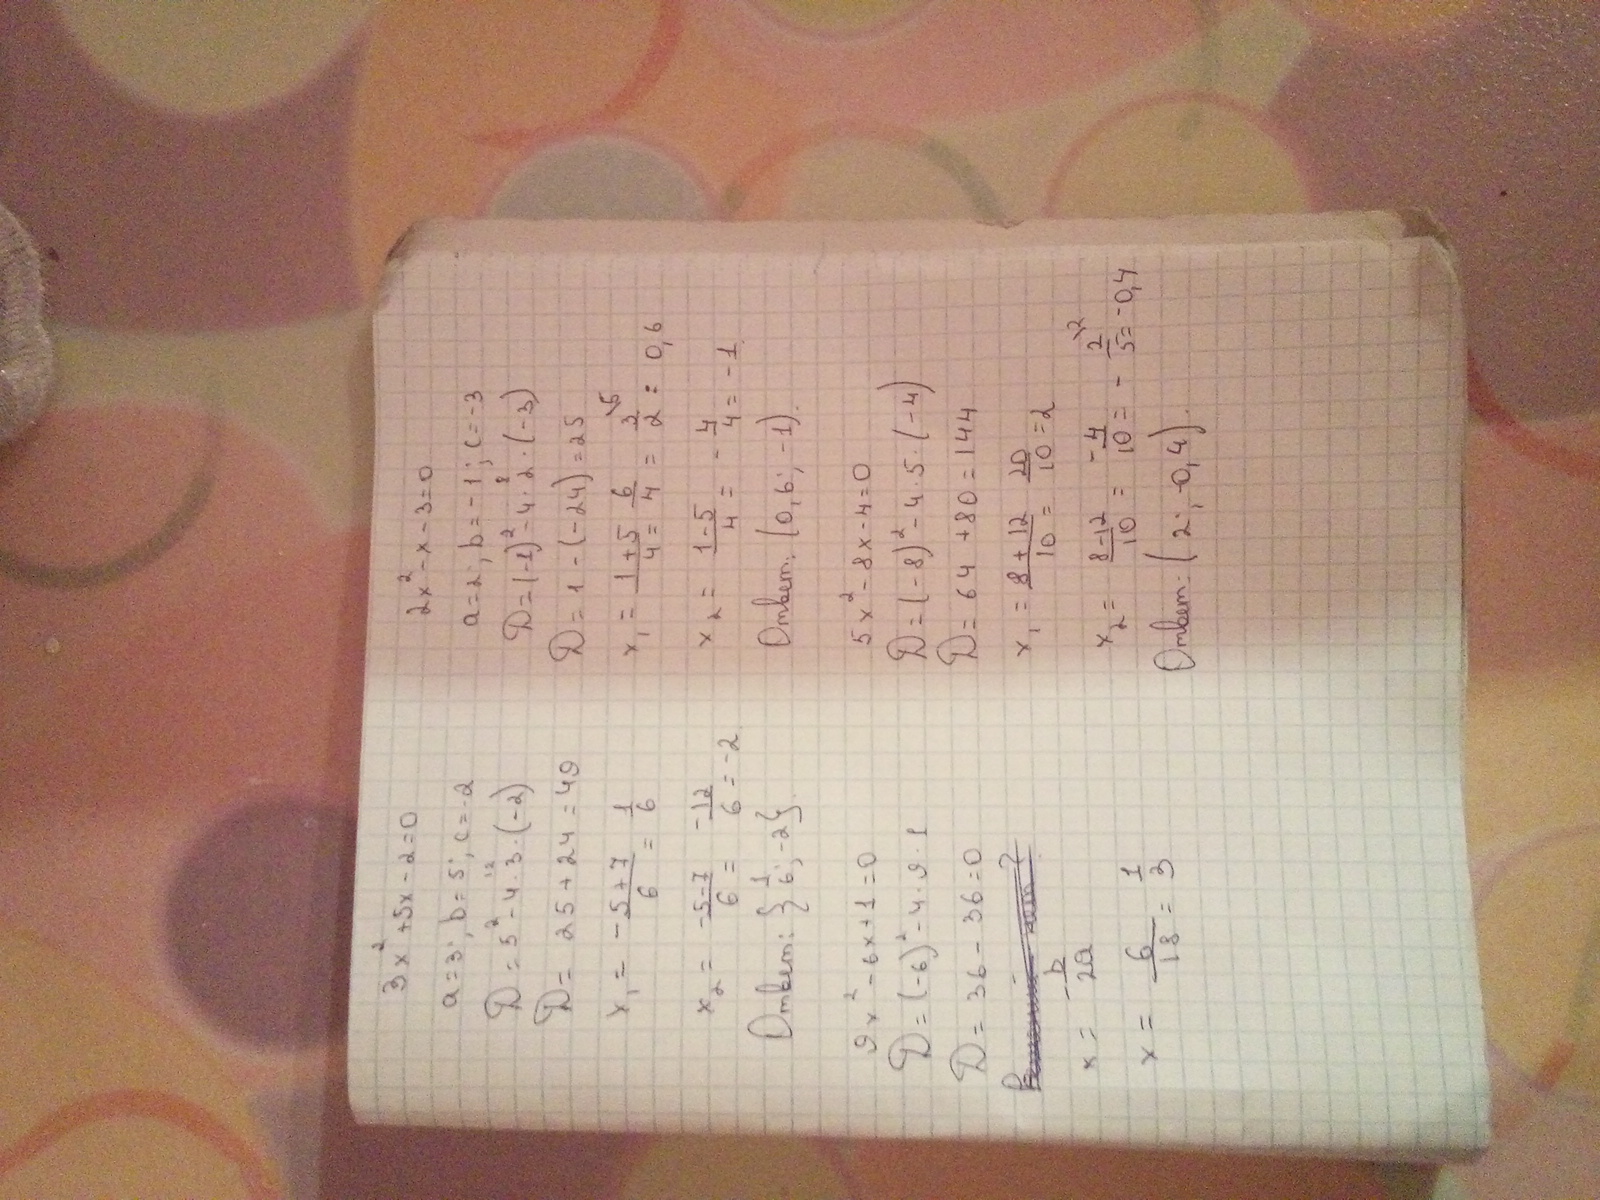 3x² + 5x - 2 = 0
a = 3; b = 5; c = -2
D = 5² - 4 · 3 · (-2)
12
D = 25 + 24 = 49
x₁ = -5+7/6 = 1/6
x₂ = -5-7/6 = -12/6 = -2
Ответ: {1/6; -2}.
9x² - 6x + 1 = 0
D = (-6)² - 4 · 9 · 1
D = 36 - 36 = 0
x = -b/2a
x = 6/18 = 1/3
2x² - x - 3 = 0
a = 2; b = -1; c = -3
D = (-1)² - 4 · 2 · (-3)
8
D = 1 - (-24) = 25
x₁ = 1+5/4 = 6/4 = 3\5/2 = 0,6
x₂ = 1-5/4 = -4/4 = -1
Ответ: (0,6; -1).
5x² - 8x - 4 = 0
D = (-8)² - 4 · 5 · (-4)
D = 64 + 80 = 144
x₁ = 8+12/10 = 20/10 = 2
x₂ = 8-12/10 = -4/10 = -2\2/5 = -0,4
Ответ: (2; -0,4).